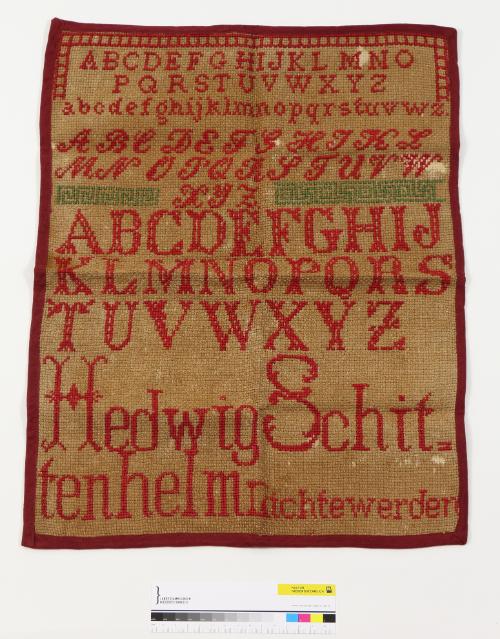 ABCDEFGHIJKL MNO
PQRSTUVWXYZ
abcdefghijklmnopqrstuvwz
ABCDEFGHIKL
MNOPQRSTUVW
XYZ
ABCDEFGHIJ
KLMNOPQRS
TUVWXYZ
Hedwig Schit=
tenhelm nichtewerden